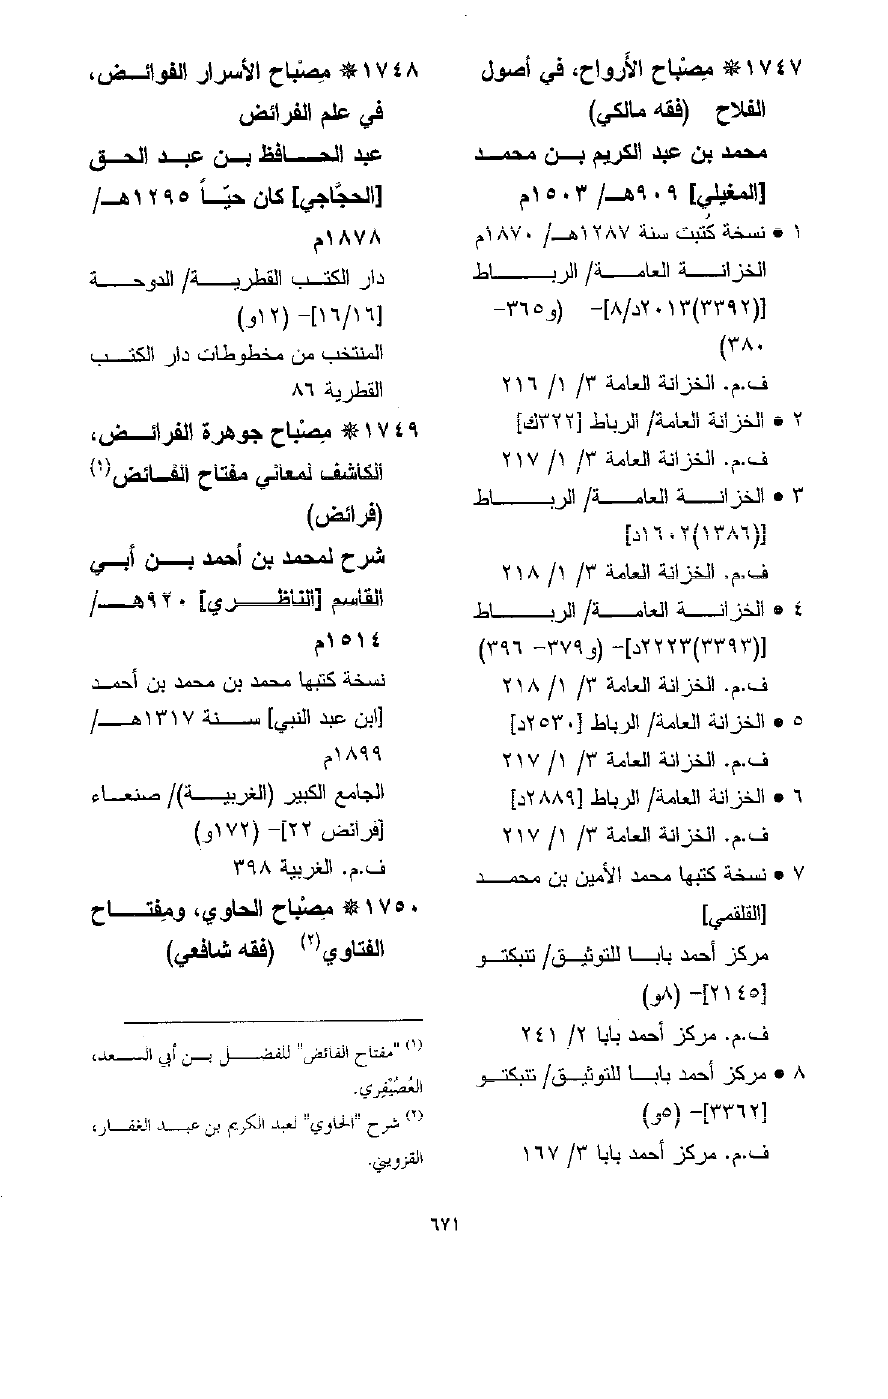 ١٧٤٧ * مِصْباح الأرواح، في أصول
الفلاح (فقه مالكي)
محمد بن عبد الكريم بن محمد
[المغيلي] ٩٠٩هـ/ ١٥٠٣م
١ • نسخة كُتبت سنة ١٢٨٧هـ/ ١٨٧٠م
الخزانة العامة/ الرباط
[(٣٣٩٢)٢٠١٣د/٨]- (و٣٦٥-
٣٨٠)
ف.م. الخزانة العامة ٣/ ١/ ٢١٦
٢ • الخزانة العامة/ الرباط [٣٢٢ك]
ف.م. الخزانة العامة ٣/ ١/ ٢١٧
٣ • الخزانة العامة/ الرباط
[(١٣٨٦)١٦٠٢د]
ف.م. الخزانة العامة ٣/ ١/ ٢١٨
٤ • الخزانة العامة/ الرباط
[(٣٣٩٣)٢٢٢٣د]- (و٣٧٩- ٣٩٦)
ف.م. الخزانة العامة ٣/ ١/ ٢١٨
٥ • الخزانة العامة/ الرباط [٢٥٣٠د]
ف.م. الخزانة العامة ٣/ ١/ ٢١٧
٦ • الخزانة العامة/ الرباط [٢٨٨٩د]
ف.م. الخزانة العامة ٣/ ١/ ٢١٧
٧ • نسخة كتبها محمد الأمين بن محمد
[القلقمي]
مركز أحمد بابا للتوثيق/ تنبكتو
[٢١٤٥]- (٨و)
ف.م. مركز أحمد بابا ٢/ ٢٤١
٨ • مركز أحمد بابا للتوثيق/ تنبكتو
[٣٣٦٢]- (٥و)
ف.م. مركز أحمد بابا ٣/ ١٦٧
١٧٤٨ * مِصْباح الأسرار الفوائض،
في علم الفرائض
عبد الحافظ بن عبد الحق
[الحجّاجي] كان حيّاً ١٢٩٥هـ/
١٨٧٨م
دار الكتب القطرية/ الدوحة
[١٦/١٦]- (١٢و)
المنتخب من مخطوطات دار الكتب
القطرية ٨٦
١٧٤٩ * مِصْباح جوهرة الفرائض،
الكاشف لمعاني مفتاح الفائض(١)
(فرائض)
شرح لمحمد بن أحمد بن أبي
القاسم [الناظري] ٩٢٠هـ/
١٥١٤م
نسخة كتبها محمد بن محمد بن أحمد
[ابن عبد النبي] سنة ١٣١٧هـ/
١٨٩٩م
الجامع الكبير (الغربية)/ صنعاء
[فرائض ٢٢]- (١٧٢و)
ف.م. الغربية ٣٩٨
١٧٥٠ * مِصْباح الحاوي، ومِفتاح
الفتاوي(٢) (فقه شافعي)
(١) "مفتاح الفائض" للفضل بن أبي السعد،
العُصَيْفِري.
(٢) شرح "الحاوي" لعبد الكريم بن عبد الغفار،
القزويني.
٦٧١